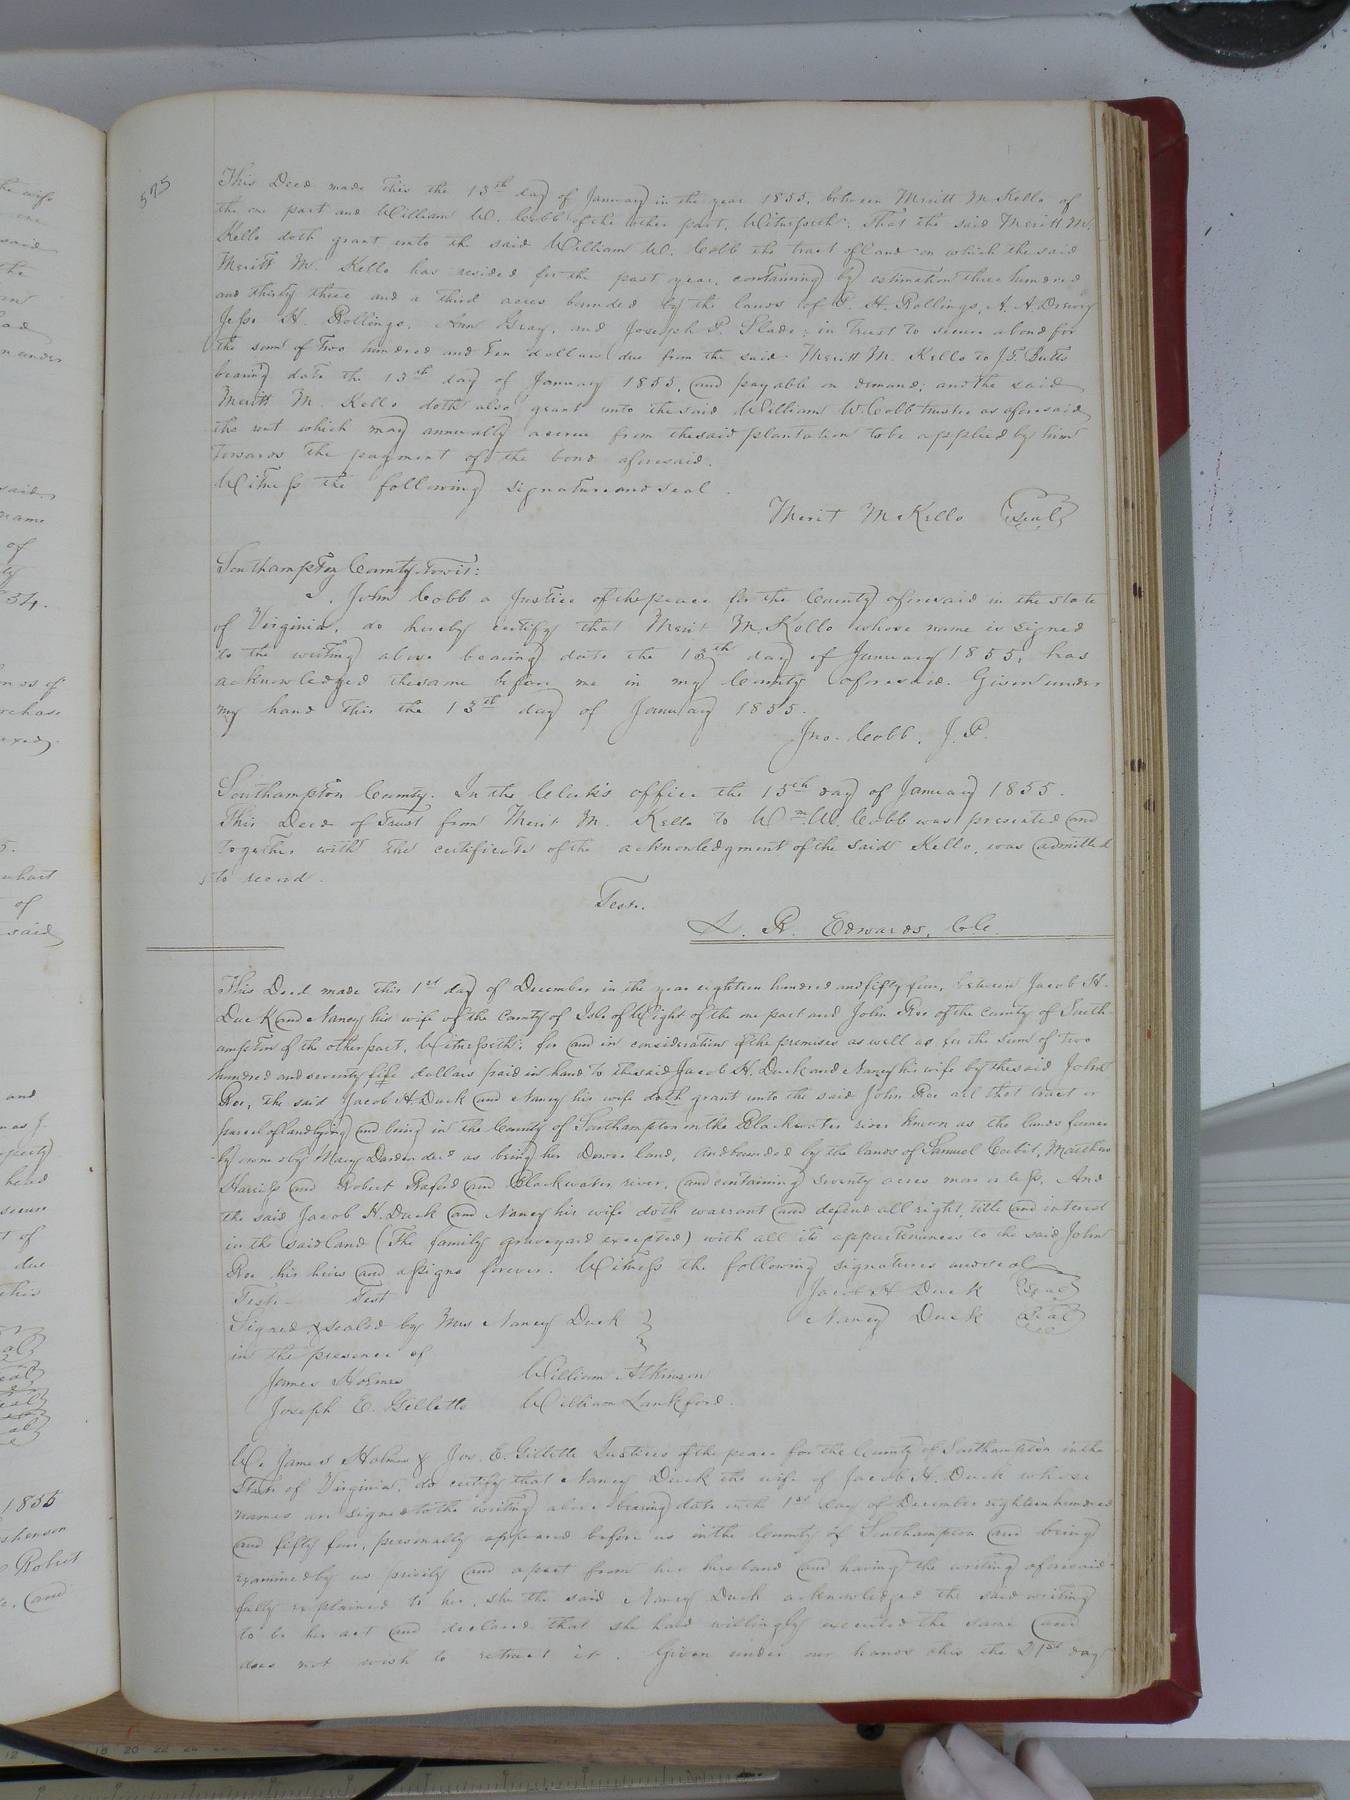 575
This Deed made this the 13th day of January in the year 1855, between Meritt M Kello of
the one part and William W. Cobb of the other part, Witnesseth: That the said Meritt M.
Kello doth grant unto the said William W. Cobb the tract of land on which the said
Meritt M. Kello has resided for the past year, containing by estimation three hundred
and thirty three and a third acres bounded by the lands of P. H. Rollings, A. A. Drewry
Jesse H. Rollings, Ann Gray, and Joseph P. Slade; in trust to secure a bond for
the sum of Two hundred and ten dollars due from the said Meritt M. Kello to J.T. Butts
bearing date the 13th day of January 1855, and payable on demand; and the said
Meritt M. Kello doth also grant unto the said William W. Cobb trustee as aforesaid
the rent which may annually accrue from the said plantation to be applied by him
towards the payment of the bond aforesaid.
Witness the following signature and seal.
Merit M Kello Seal
Southampton County, Towit:
I, John Cobb a Justice of the peace for the County aforesaid in the state
of Virginia, do hereby certify that Merit M. Kello whose name is signed
to the writing above bearing date the 13th day of January 1855, has
acknowledged the same before me in my County aforesaid. Given under
my hand this the 13th day of January 1855.
Jno. Cobb. J. P.
Southampton County. In the Clerk's office the 15th day of January 1855.
This Deed of Trust from Merit M. Kello to Wm. W. Cobb was presented and
together with the certificate of the acknowledgment of the said Kello, was admitted
to record.
Teste.
L. R. Edwards, C.C.
This Deed made this 1st day of December in the year eighteen hundred and fifty four, between Jacob H.
Duck and Nancy his wife of the County of Isle of Wight of the one part and John Roe of the county of South-
ampton of the other part, Witnesseth: for and in consideration of the premises as well as for the sum of two
hundred and seventy five dollars paid in hand to the said Jacob H. Duck and Nancy his wife by the said John
Roe, the said Jacob H. Duck and Nancy his wife doth grant unto the said John Roe all that tract or
parcel of land lying and being in the County of Southampton on the Blackwater river known as the lands former-
ly owned by Mary Darden decd as being her Dower land, and bounded by the lands of Samuel Corbit, Matthew
Harriss and Robert Raford and Blackwater river, and containing seventy acres more or less. And
the said Jacob H. Duck and Nancy his wife doth warrant and defend all right, title and interest
in the said land (The family graveyard excepted) with all its appurtenances to the said John
Roe his heirs and assigns forever. Witness the following signatures and seal
Teste Test Jacob H Duck Seal
Signed & sealed by Mrs Nancy Duck Nancy Duck Seal
in the presence of
James Holmes William Atkinson
Joseph E. Gillette William Lankford.
We James Holmes & Jos. E. Gillette Justices of the peace for the County of Southampton in the
State of Virginia, do certify that Nancy Duck the wife of Jacob H. Duck whose
names are signed to the writing above bearing date on the 1st day of December eighteen hundred
and fifty four, personally appeared before us in the County of Southampton and being
examined by us privily and apart from her husband and having the writing aforesaid
fully explained to her, she the said Nancy Duck acknowledged the said writing
to be her act and declared that she had willingly executed the same and
does not wish to retract it. Given under our hands this the 21st day